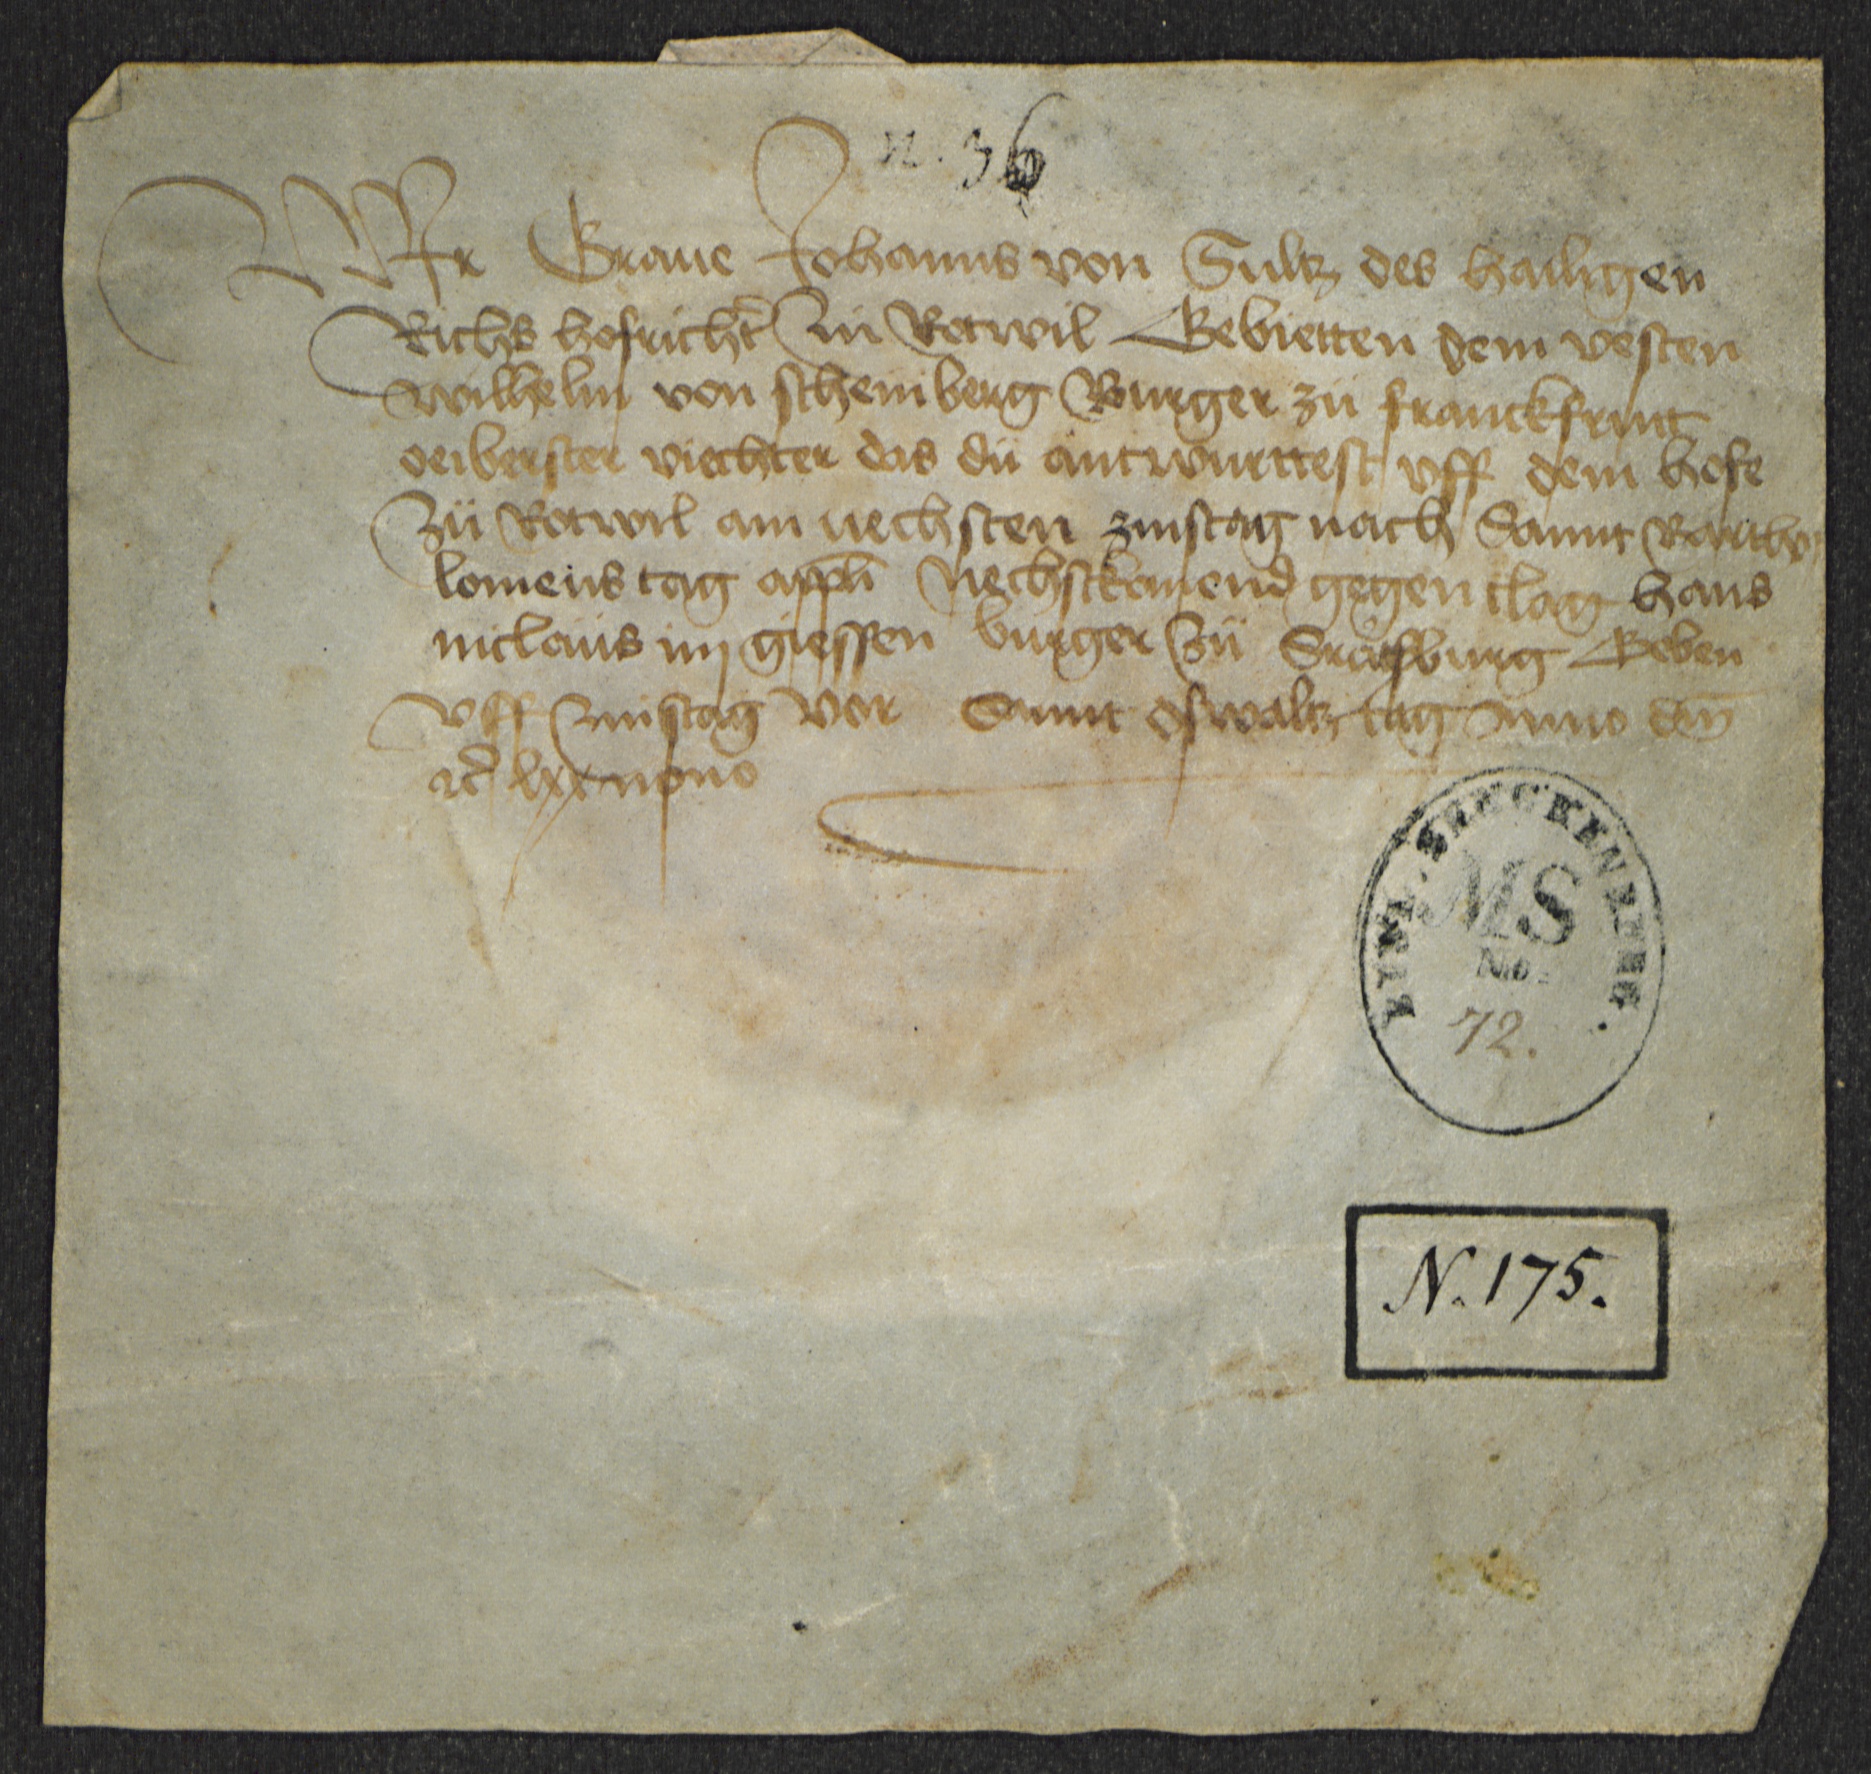 n. 36
Wir Graue Johanns von Sultz des hailigen
Richs hofricht̃ Zu Rotwil Gebietten dem vesten
wilhelm von schemberg Burger zü franckfurt
das dü antwurttest vff dem hofe
Zü Rotwil am nechsten zinstag nach Sannt Bartho-
lomeus tag appli Nechstkomend gegen clag hans
niclaüs im giessen burger Zü Straßburg Geben
vff Zinstag vor Sannt oswaltz tag Anno dm̃
rc̃ lxx nono
MS
No.
72.
N. 175.